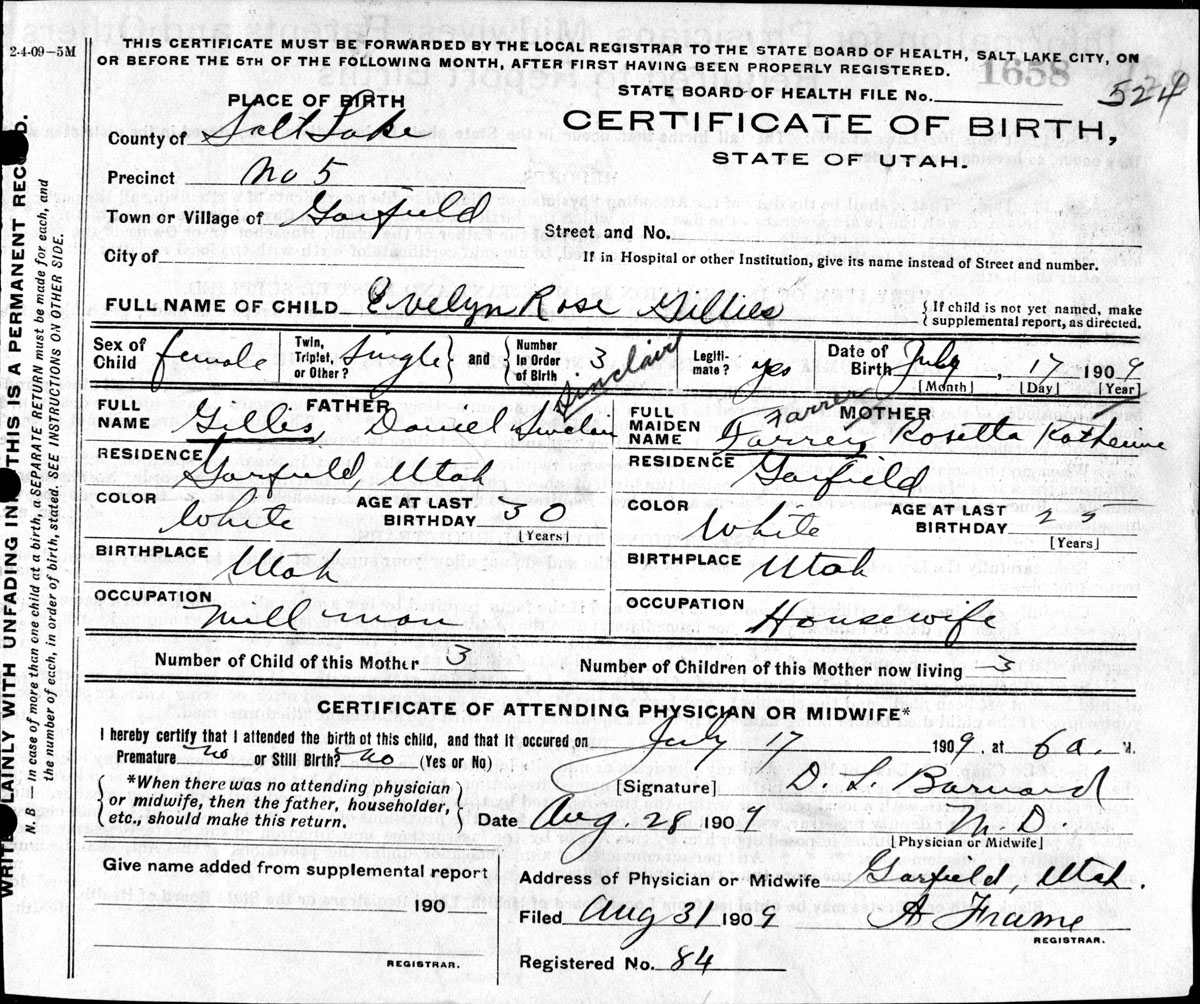 2-4-09-5M
THIS CERTIFICATE MUST BE FORWARDED BY THE LOCAL REGISTRAR TO THE STATE BOARD OF HEALTH, SALT LAKE CITY, ON
OR BEFORE THE 5TH OF THE FOLLOWING MONTH, AFTER FIRST HAVING BEEN PROPERLY REGISTERED.
1658
STATE BOARD OF HEALTH FILE No.
524
PLACE OF BIRTH
CERTIFICATE OF BIRTH,
STATE OF UTAH.
County of Salt Lake
Precinct No 5
Town or Village of Garfield
Street and No.
City of
If in Hospital or other Institution, give its name instead of Street and number.
FULL NAME OF CHILD Evelyn Rose Gillies
If child is not yet named, make
supplemental report, as directed.
Sex of Child female
Twin, Triplet, or Other? Single and Number In Order of Birth 3
Legitimate? yes
Date of Birth July, 17 1909
[Month] [Day] [Year]
FATHER
Sinclair
FULL NAME Gillis, Daniel Sinclair
RESIDENCE Garfield, Utah
COLOR White
AGE AT LAST BIRTHDAY 30
[Years]
BIRTHPLACE Utah
OCCUPATION Mill man
MOTHER
Farrer
FULL MAIDEN NAME Rosetta Katherine
RESIDENCE Garfield
COLOR White
AGE AT LAST BIRTHDAY
[Years]
BIRTHPLACE Utah
OCCUPATION Housewife
Number of Child of this Mother 3
Number of Children of this Mother now living 3
CERTIFICATE OF ATTENDING PHYSICIAN OR MIDWIFE*
I hereby certify that I attended the birth of this child, and that it occured on July 17 1909, at 6 a. M.
Premature no or Still Birth? no (Yes or No)
[Signature] D. L. Barnard
*When there was no attending physician
or midwife, then the father, householder,
etc., should make this return.
Date Aug. 28 1909
M. D.
[Physician or Midwife]
Give name added from supplemental report
190
REGISTRAR.
Address of Physician or Midwife Garfield, Utah.
Filed Aug 31 1909
A Frame
REGISTRAR.
Registered No. 84
WRITE PLAINLY WITH UNFADING INK THIS IS A PERMANENT RECORD.
N. B.—In case of more than one child at a birth, a SEPARATE RETURN must be made for each, and
the number of each, in order of birth, stated. SEE INSTRUCTIONS ON OTHER SIDE.